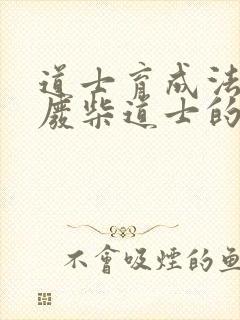 道士育成法
廢柴道士的
不會吸煙的魚